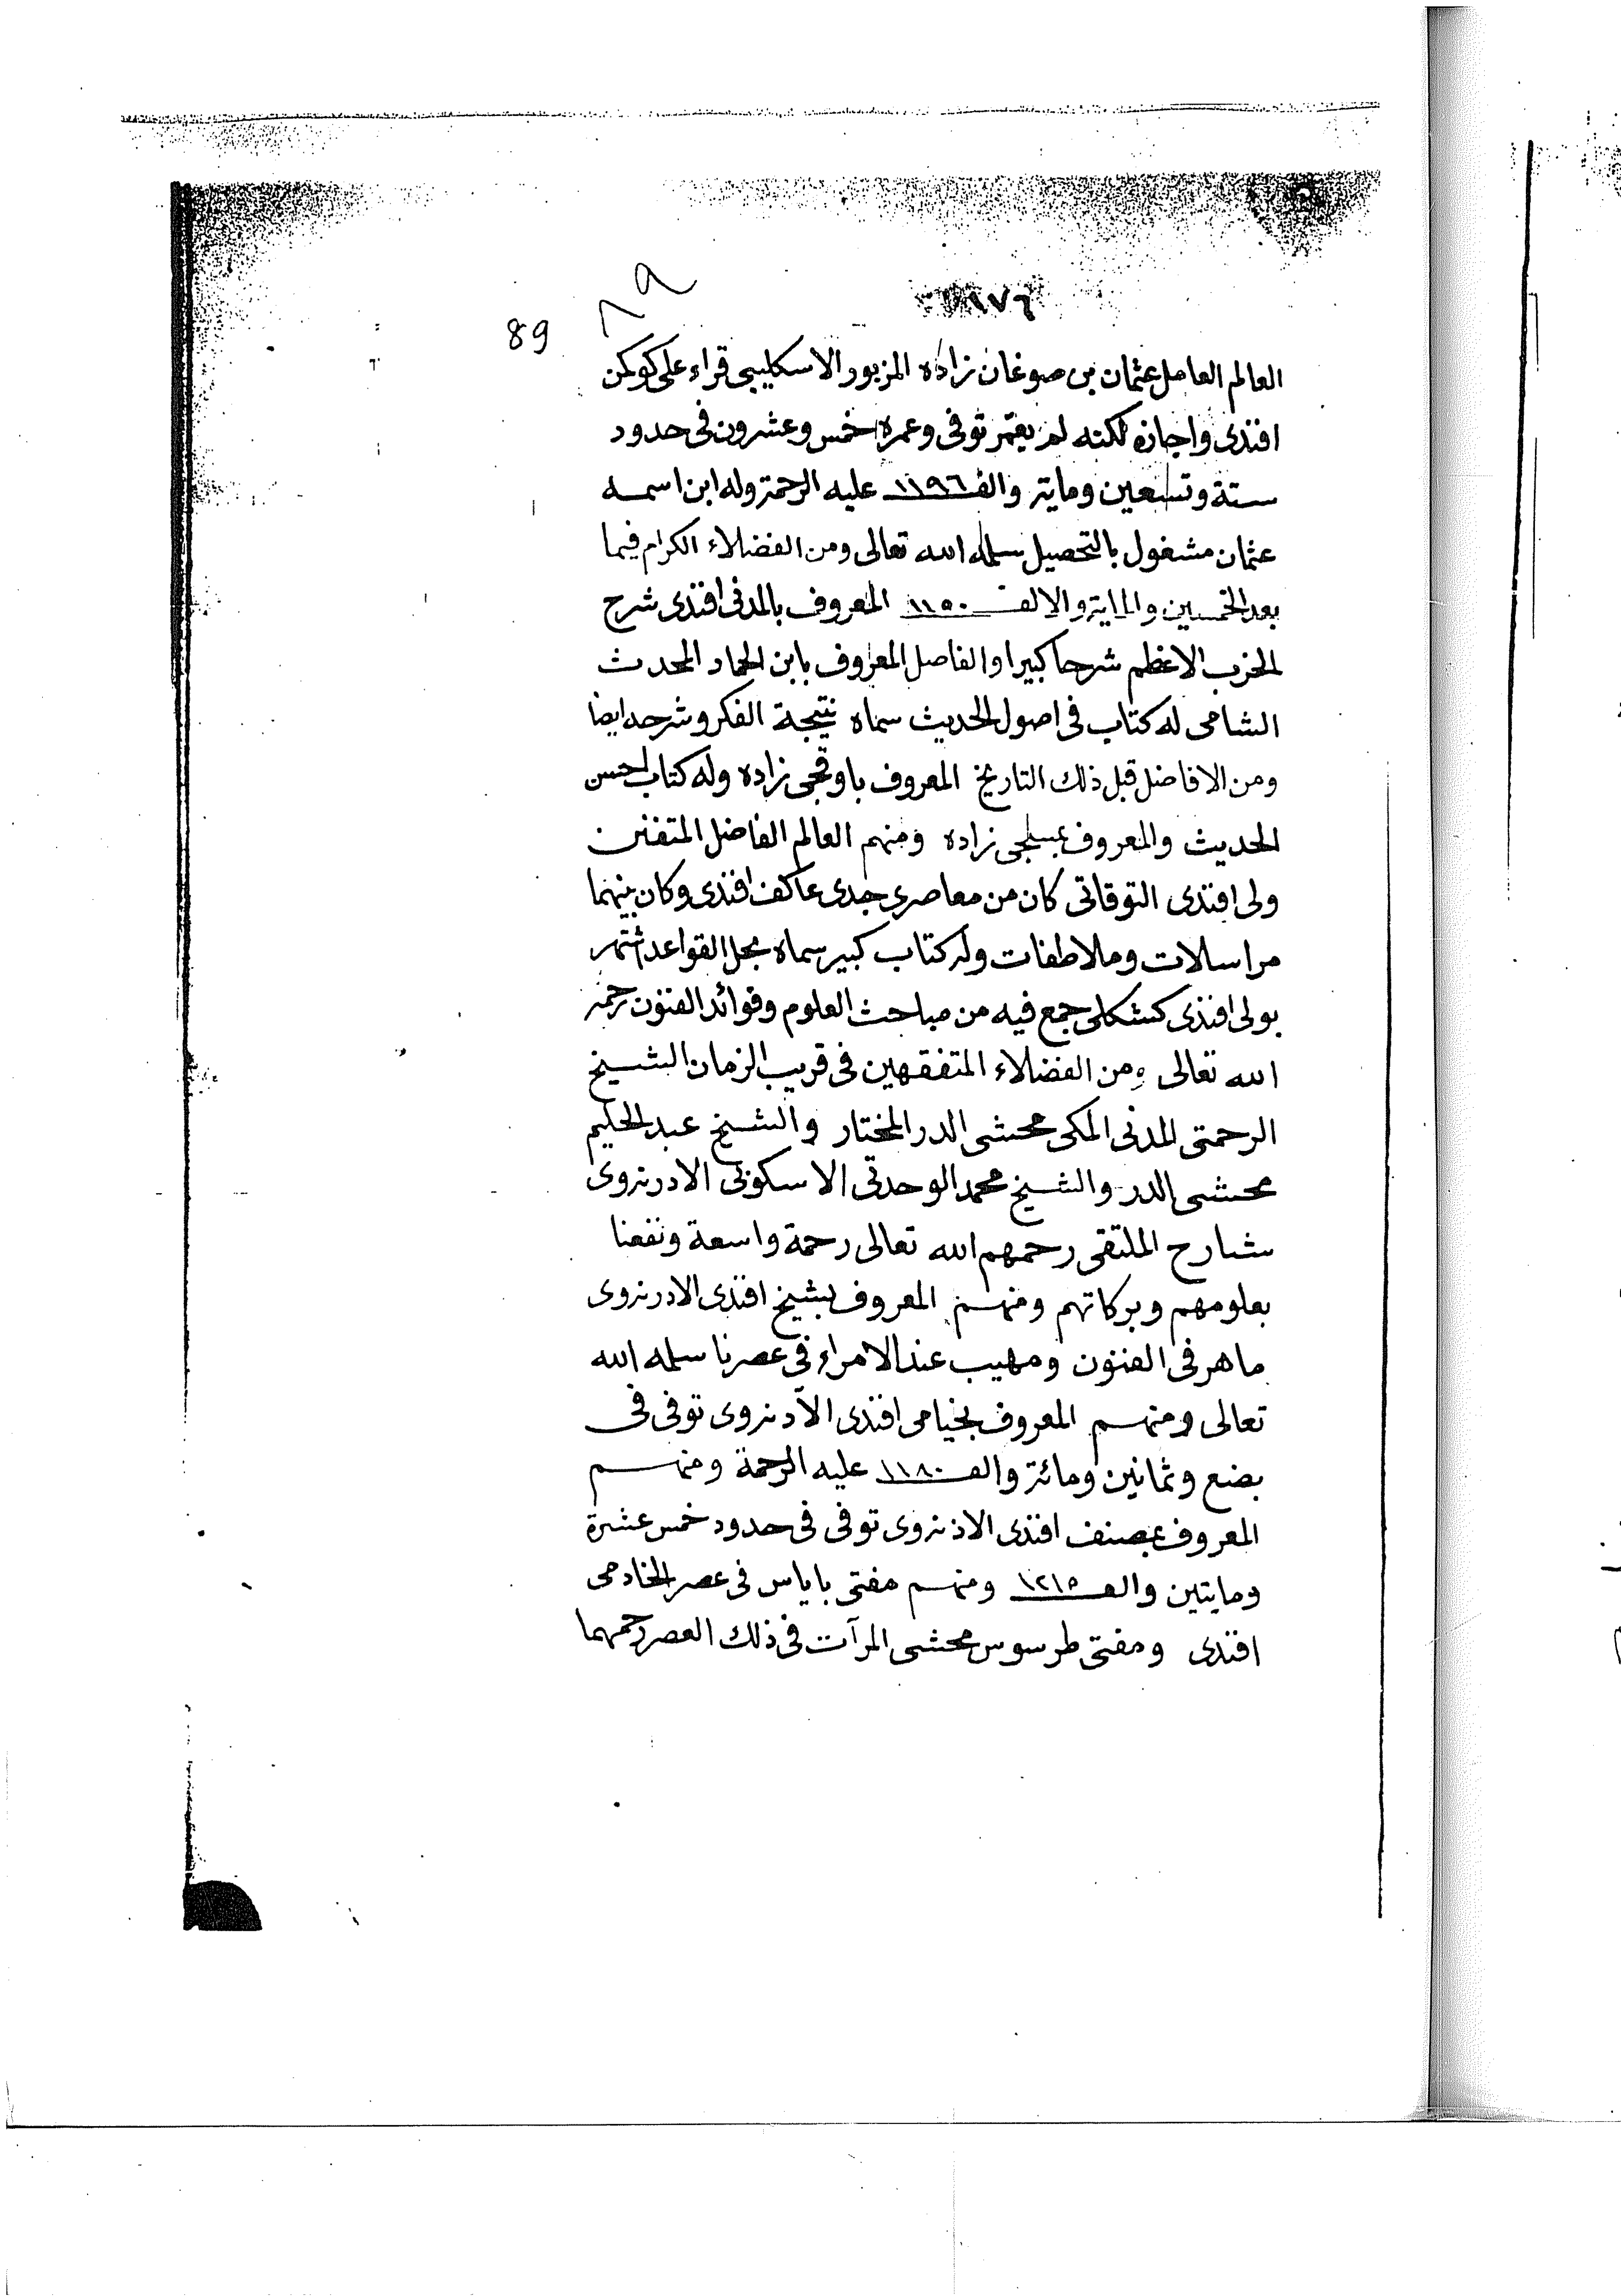 ١٧٦
٨٩
89
العالم العامل عثمان بن صوغان زاده المزبور الاسكليبى قراء على كوكمن
افندى واجازه لكنه لم يعمّر توفى وعمره خمس وعشرون فى حدود
ستة وتسعين وماية والف ١١٩٦ عليه الرحمة وله ابن اسمه
عثمان مشغول بالتحصيل سلمه الله تعالى ومن الفضلاء الكرام فيما
بعد الخمسين والماية والالف ١١٥٠ المعروف بالمدنى افندى شرح
الحزب الاعظم شرحا كبيرا والفاضل المعروف بابن الحماد المحدث
الشامى له كتاب فى اصول الحديث سماه نتيجة الفكر وشرحه ايضا
ومن الافاضل قبل ذلك التاريخ المعروف باوقجى زاده وله كتاب احسن
الحديث والمعروف زاده ومنهم العالم الفاضل المتفنن
ولى افندى التوقاتى كان من معاصرى جدى عاكف افندى وكان بينهما
مراسالات وملاطفات وله كتاب كبير سماه القواعد اشتهر
بولى افندى كشكلى جمع فيه من مباحث العلوم وفوائد الفنون رحمه
الله تعالى ومن الفضلاء المتفقهين فى قريب الزمان الشيخ
الرحمتى المدنى المكى محشى الدر المختار والشيخ عبد الحليم
محشى الدر والشيخ محمد الوحدتى الاسكوبى الادرنروى
شارح الملتقى رحمهم الله تعالى رحمة واسعة ونفعنا
بعلومهم وبركاتهم ومنهم المعروف بشيخ افندى الادرنروى
ماهر فى الفنون ومهيب عند الامراء فى عصرنا سلمه الله
تعالى ومنهم المعروف بخيامى افندى الآدنروى توفى فى
بضع وثمانين ومائة والف ١١٨٠ عليه الرحمة ومنهم
المعروف بمصنف افندى الادنروى توفى فى حدود خمس عشرة
ومايتين والف ١٢١٥ ومنهم مفتى باياس فى عصر الخادمى
افندى ومفتى طرسوس محشى المرآت فى ذلك العصر رحمهما